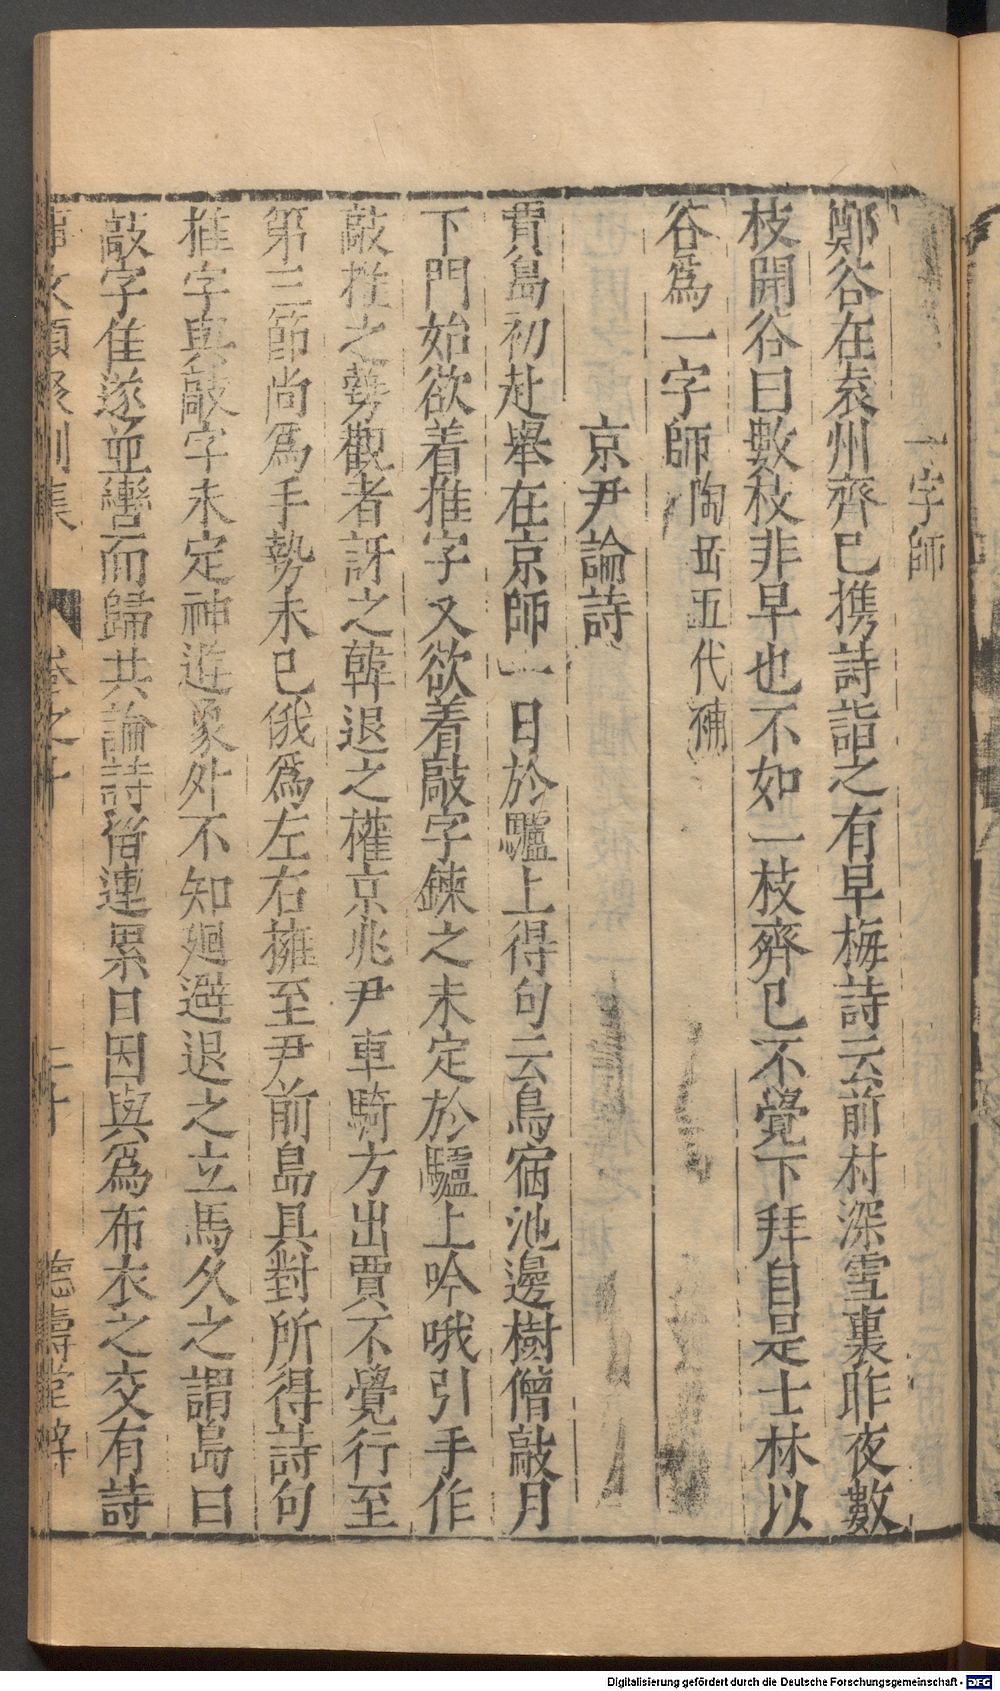 一字師
鄭谷在袁州齊已携詩詣之有早梅詩云前村深雪裏昨夜數
枝開谷曰數枝非早也不如一枝齊已不覺下拜自是士林以
谷爲一字師陶岳五代補
京尹論詩
賈島初赴舉在京師一日於驢上得句云鳥宿池邊樹僧敲月
下門始欲着推字又欲着敲字鍊之未定於驢上吟哦引手作
敲推之勢觀者訝之韓退之權京兆尹車騎方出賈不覺行至
第三節尚爲手勢未已俄爲左右擁至尹前島具對所得詩句
推字與敲字未定神遊象外不知廻避退之立馬久之謂島曰
敲字佳遂並轡而歸共論詩留連累日因與爲布衣之交有詩
事文類聚別集 卷之十 二十 德壽堂梓
Digitalisierung gefördert durch die Deutsche Forschungsgemeinschaft - DFG